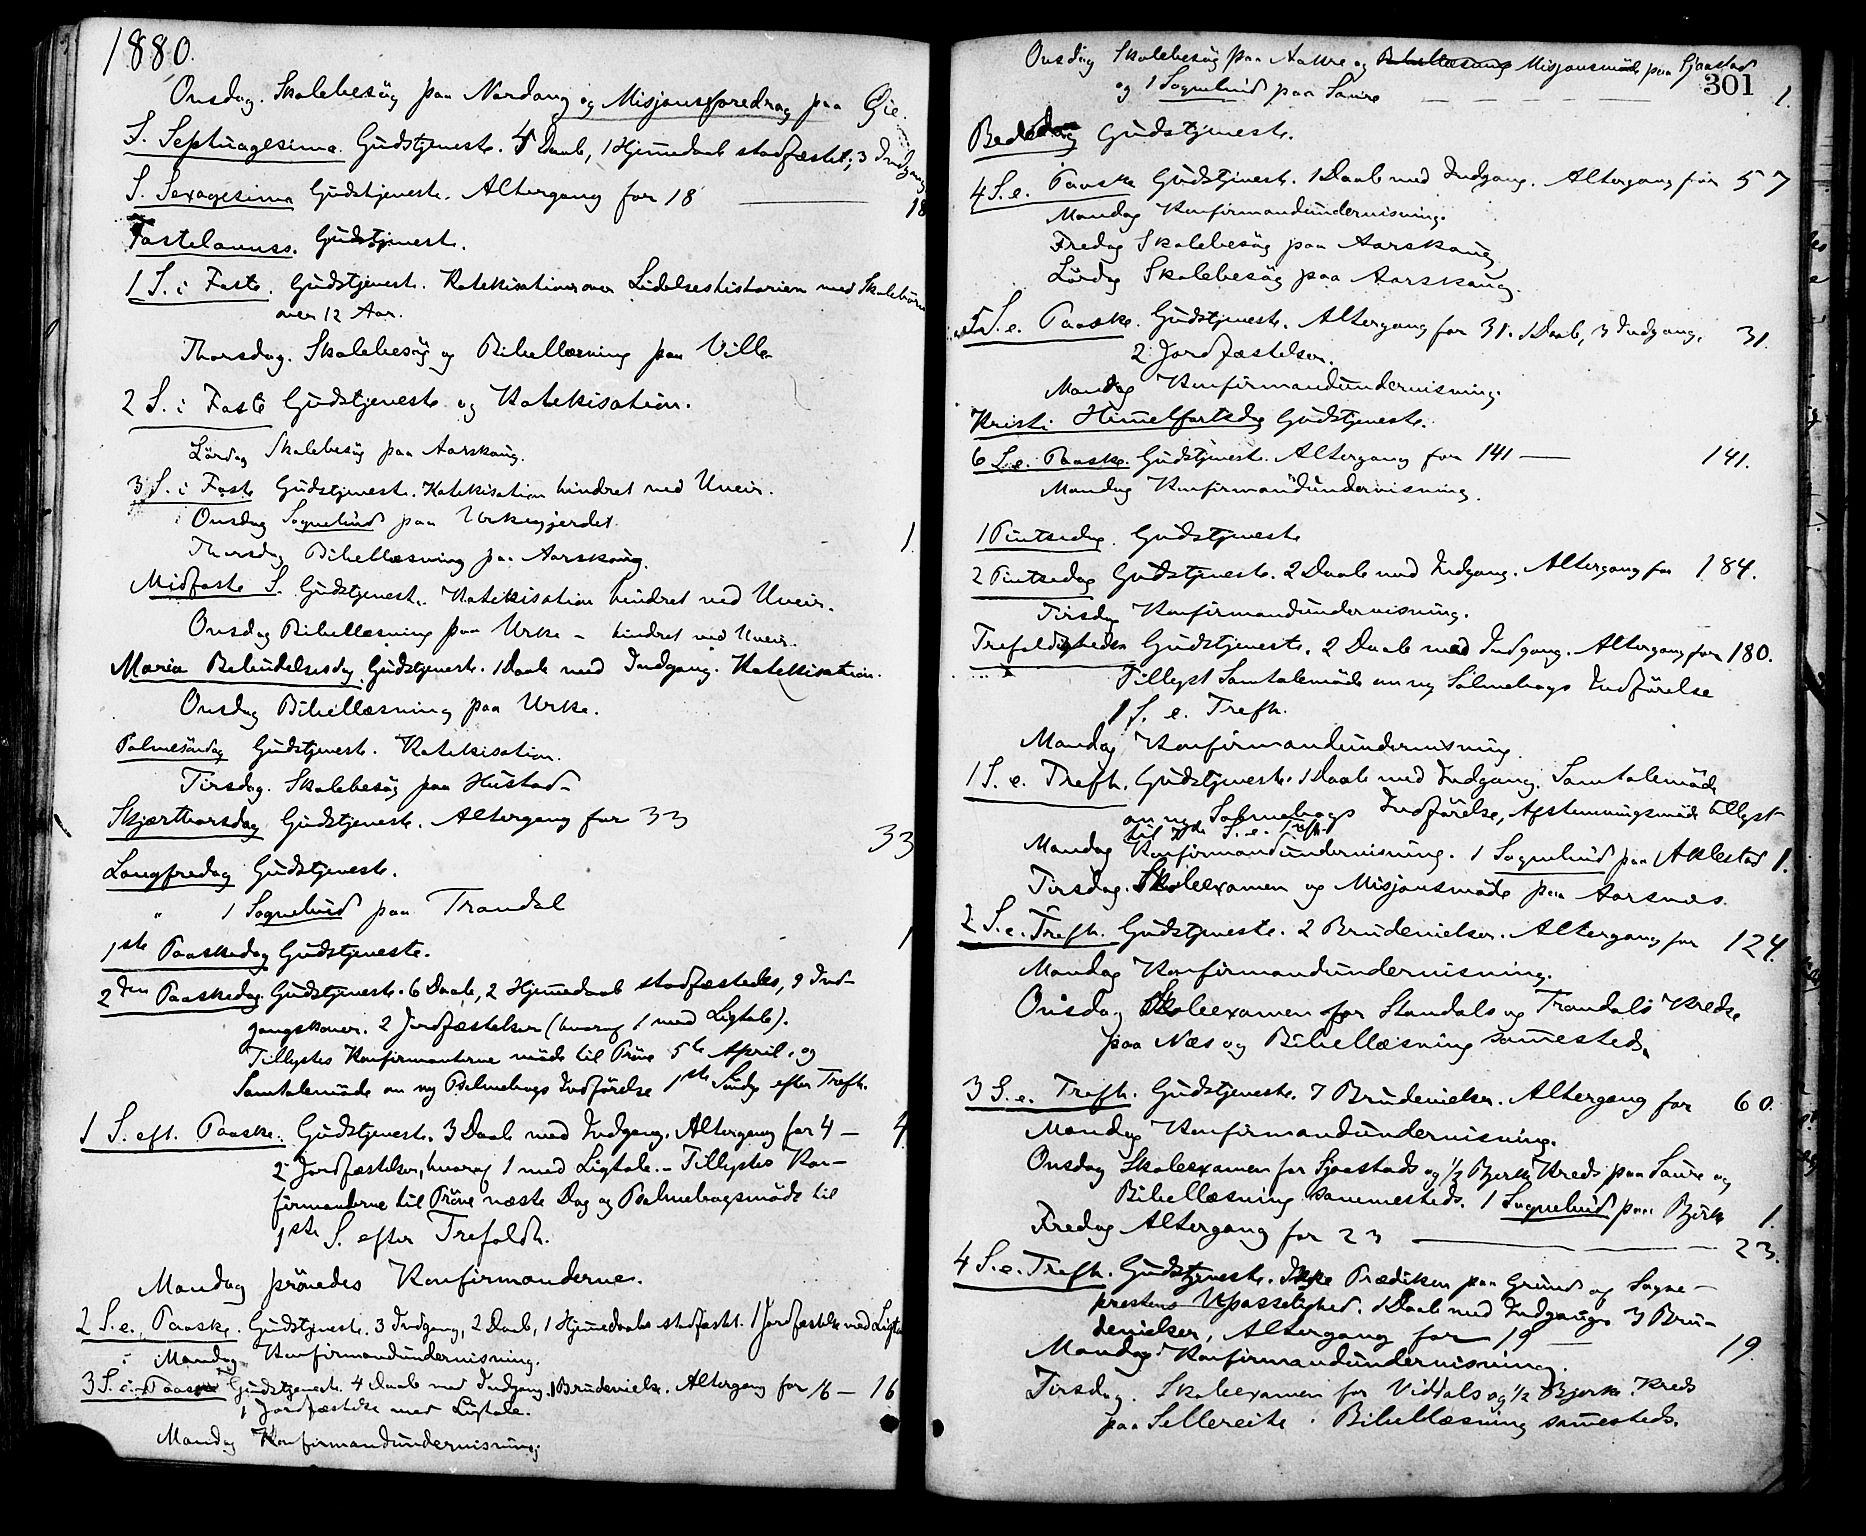 1880.
Onsdag. Skolebesög paa Nordang og Misjonsforedrag paa Öie.
S. Septuagesima. Gudstjeneste. 4 Daab, 1 Hjemmedaab stadfæstet; 3 Indgang
S. Sexagesima Gudstjeneste. Altergang for 18 18
Fastelavnss. Gudstjeneste.
1 S. i Faste. Gudstjeneste. Katekisation over Lidelseshistorien med Skolebörn
over 12 Aar.
Thorsdag. Skolebesög og Bibellæsning paa Ville
2 S. i Faste Gudstjeneste og Katekisation.
Lördag Skolebesög paa Aarskoug.
3 S. i Faste Gudstjeneste. Katekisation hindret ved Uveir.
Onsdag Sognebud paa Urkegjerdet. 1.
Thorsdag Bibellæsning paa Aarskoug.
Midfaste S. Gudstjeneste. Katekisation hindret ved Uveir.
Onsdag Bibellæsning paa Urke – hindret ved Uveir.
Maria Bebudelsesdag. Gudstjeneste. 1 Daab med Indgang. Katekisation.
Onsdag Bibellæsning paa Urke.
Palmesöndag Gudstjeneste. Katekisation.
Tirsdag. Skolebesög paa Hustad
Skjærthorsdag Gudstjeneste. Altergang for 33 33
Langfredag Gudstjeneste.
" 1 Sognebud paa Trandal 1
1ste Paaskedag Gudstjeneste.
2den Paaskedag. Gudstjeneste. 6 Daab, 2 Hjemmedaab stadfæstedes, 9 Ind-
gangskoner. 2 Jordfæstelser (hvoraf 1 med Ligtale).
Tillystes Konfirmanterne möde til Pröve 5te April, og
Samtalemöde om ny Salmebogs Indförelse 1ste Söndg efter Trefh.
1 S. eft. Paaske. Gudstjeneste. 3 Daab med Indgang. Altergang for 4 – 4.
2 Jordfæstelser, hvoraf 1 med Ligtale. – Tillystes Kon-
firmanderne til Pröve næste Dag og Salmebogsmöde til
1ste S. efter Trefoldh.
Mandag prövedes Konfirmanderne.
2 S. e. Paaske. Gudstjeneste. 3 Indgang, 2 Daab, 1 Hjemmedaab stadfæstet. 1 Jordfæstelse med Ligta
Mandag Konfirmandundervisning.
3 S. e. Paaske Gudstjeneste. 4 Daab med Indgang. 1 Brudevielse. Altergang for 16 – 16
1 Jordfæstelse med Ligtale.
Mandag Konfirmandundervisning.
301
Onsdag Skolebesög paa og Bibellæsning Misjonsmöde paa Sjaastad
og 1 Sognebud paa Saure 1.
Bededag Gudstjeneste.
4 S. e. Paaske Gudstjeneste. 1 Daab med Indgang. Altergang for 57
Mandag Konfirmandundervisning.
Fredag Skolebesög paa Aarskoug
Lördag Skolebesög paa Aarskoug.
5 S. e. Paaske. Gudstjeneste. Altergang for 31. 1 Daab, 3 Indgang, 31.
2 Jordfæstelser.
Mandag Konfirmandundervisning.
Kristi Himmelfartsdag Gudstjeneste.
6 S. e. Paaske. Gudstjeneste. Altergang for 141 – 141.
Mandag Konfirmandundervisning.
1 Pintsedag. Gudstjeneste
2 Pintsedag Gudstjeneste. 2 Daab med Indgang. Altergang for 184.
Tirsdag Konfirmandundervisning.
Trefoldigheds Gudstjeneste. 2 Daab med Indgang. Altergang for 180.
Tillyst Samtalemöde om ny Salmebogs Indförelse
1 S. e. Trefh.
Mandag Konfirmandundervisning
1 S. e. Trefh. Gudstjeneste. 1 Daab med Indgang. Samtalemöde
om ny Salmebogs Indförelse, Afstemningsmöde tillyst
til S. e. Trefh.
Mandag Konfirmandundervisning. 1 Sognebud paa Aklestad 1.
Tirsdag. Skoleexamen og Misjonsmöde paa Aarsnes.
2 S. e. Trefh. Gudstjeneste. 2 Brudevielser. Altergang for 124.
Mandag Konfirmandundervisning.
Onsdag Skoleexamen for Standals og Trandals Kreds
paa Næs og Bibellæsning sammesteds.
3 S. e. Trefh. Gudstjeneste. 7 Brudevielser. Altergang for 60.
Mandag Konfirmandundervisning.
Onsdag Skoleexamen for Sjaastads og 1/2 Bjerke Kreds paa Saure og
Bibellæsning sammesteds. 1 Sognebud paa Bjerke 1.
Fredag Altergang for 23 23.
4 S. e. Trefh. Gudstjeneste. Ikke Prædiken paa Grund og Sogne-
prestens Upasselighed. 1 Daab med Indgang. 3 Bru-
devielser, Altergang for 19 19.
Mandag Konfirmandundervisning.
Tirsdag. Skoleexamen for Viddals og 1/2 Bjerke Kreds
paa Sellereite. Bibellæsning sammesteds.